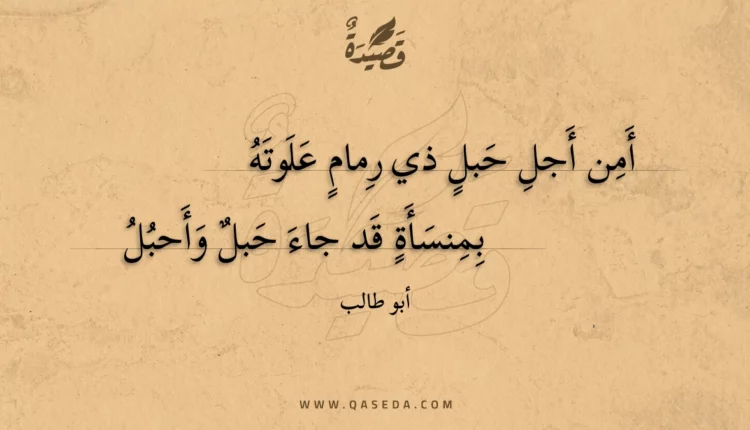 قَصِيْدَةٌ
أَمِن أَجلِ حَبلٍ ذي رِمامٍ عَلَوتَهُ
بِمِنسَأَةٍ قَد جاءَ حَبلٌ وَأَحبُلُ
أبو طالب
WWW.QASEDA.COM